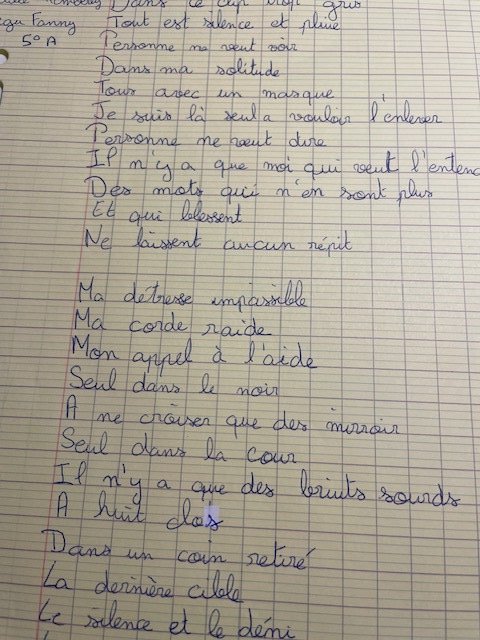 Dans ce clip trop gris
Fanny
5° A
Tout est silence et pluie
Personne ne veut voir
Dans ma solitude
Tous avec un masque
Je suis là seul a vouloir l'enlever
Personne ne veut dire
Il n'y a que moi qui veut l'entend
Des mots qui n'en sont plus
Et qui blessent
Ne laissent aucun répit
Ma détresse impassible
Ma corde raide
Mon appel à l'aide
Seul dans le noir
A ne croiser que des mirroir
Seul dans la cour
Il n'y a que des briuts sourds
A huit clos
Dans un coin retiré
La dernière cible
Le silence et le déni